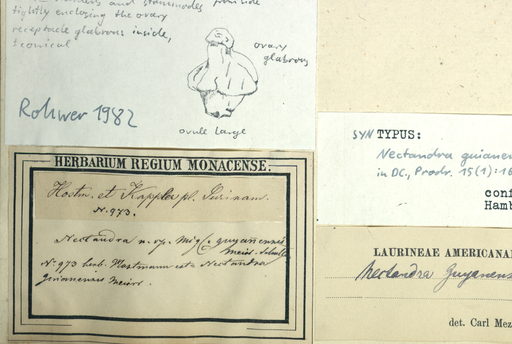 and staminodes
tightly enclosing the ovary
receptacle glabrous inside,
± conical
ovary
glabrous
ovule large
Rohwer 1982
HERBARIUM REGIUM MONACENSE.
Hostm. et Kappler pl. Surinam.
N. 973.
Nectandra n. sp. Miq. (guyanensis
Meisn.
N. 973 herb. Hostmann est Nectandra
guianensis Meisn.
SYN TYPUS:
Nectandra guianen
in DC., Prodr. 15(1):16
conf
Hamb
LAURINEAE AMERICANA
Nectandra Guyanens
det. Carl Mez